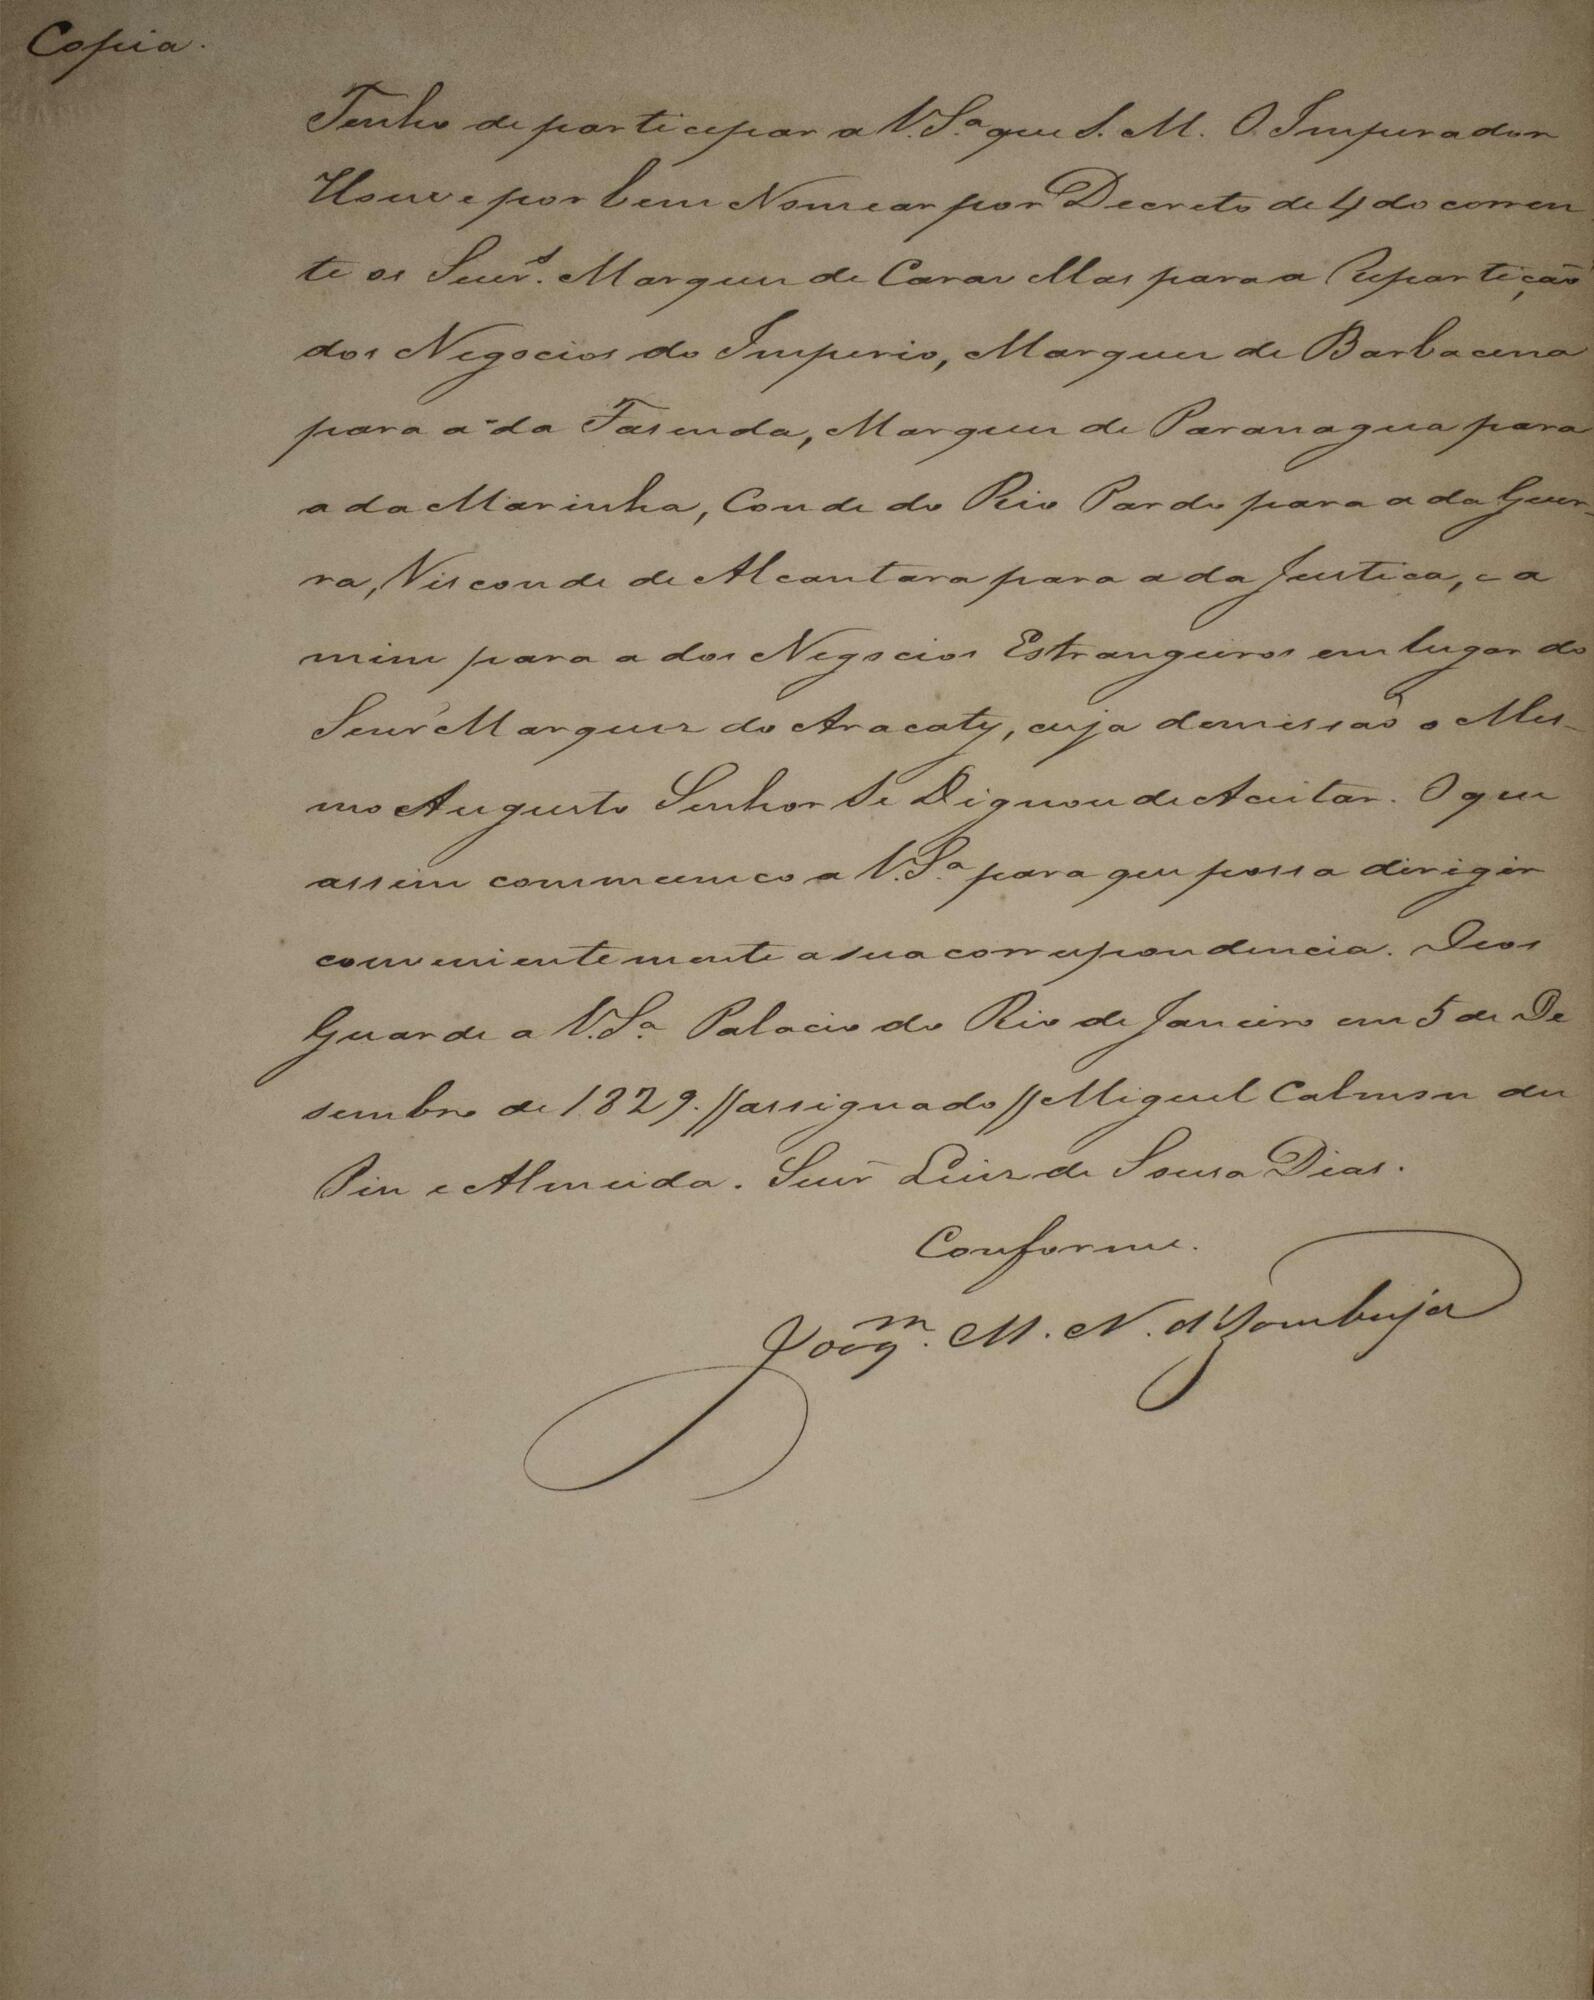 Copia.
Tenho de participar a V.Sª que S. M. O Imperador
Houve por bem Nomear por Decreto de 4 do corren
te os Senrs. Marquez de Caravellas para a Repartição
dos Negocios do Imperio, Marquez de Barbacena
para a da Fasenda, Marquez de Paranagua para
a da Marinha, Conde do Rio Pardo para a da Guer-
ra, Visconde de Alcantara para a da Justica, e a
mim para a dos Negocios Estrangeiros em lugar do
Senr Marquez do Aracaty, cuja demissão o Mes-
mo Augusto Senhor Se Dignou de Aceitar. O que
assim communico a V.Sª para que possa dirigir
convenientemente a sua correspondencia. Deos
Guarde a V.Sª Palacio do Rio de Janeiro em 5 de De
sembro de 1829. //assignado// Miguel Calmon du
Pin e Almeida. Senr Luiz de Sousa Dias.
Conforme.
Joaqm. M. N. d'Azambuja